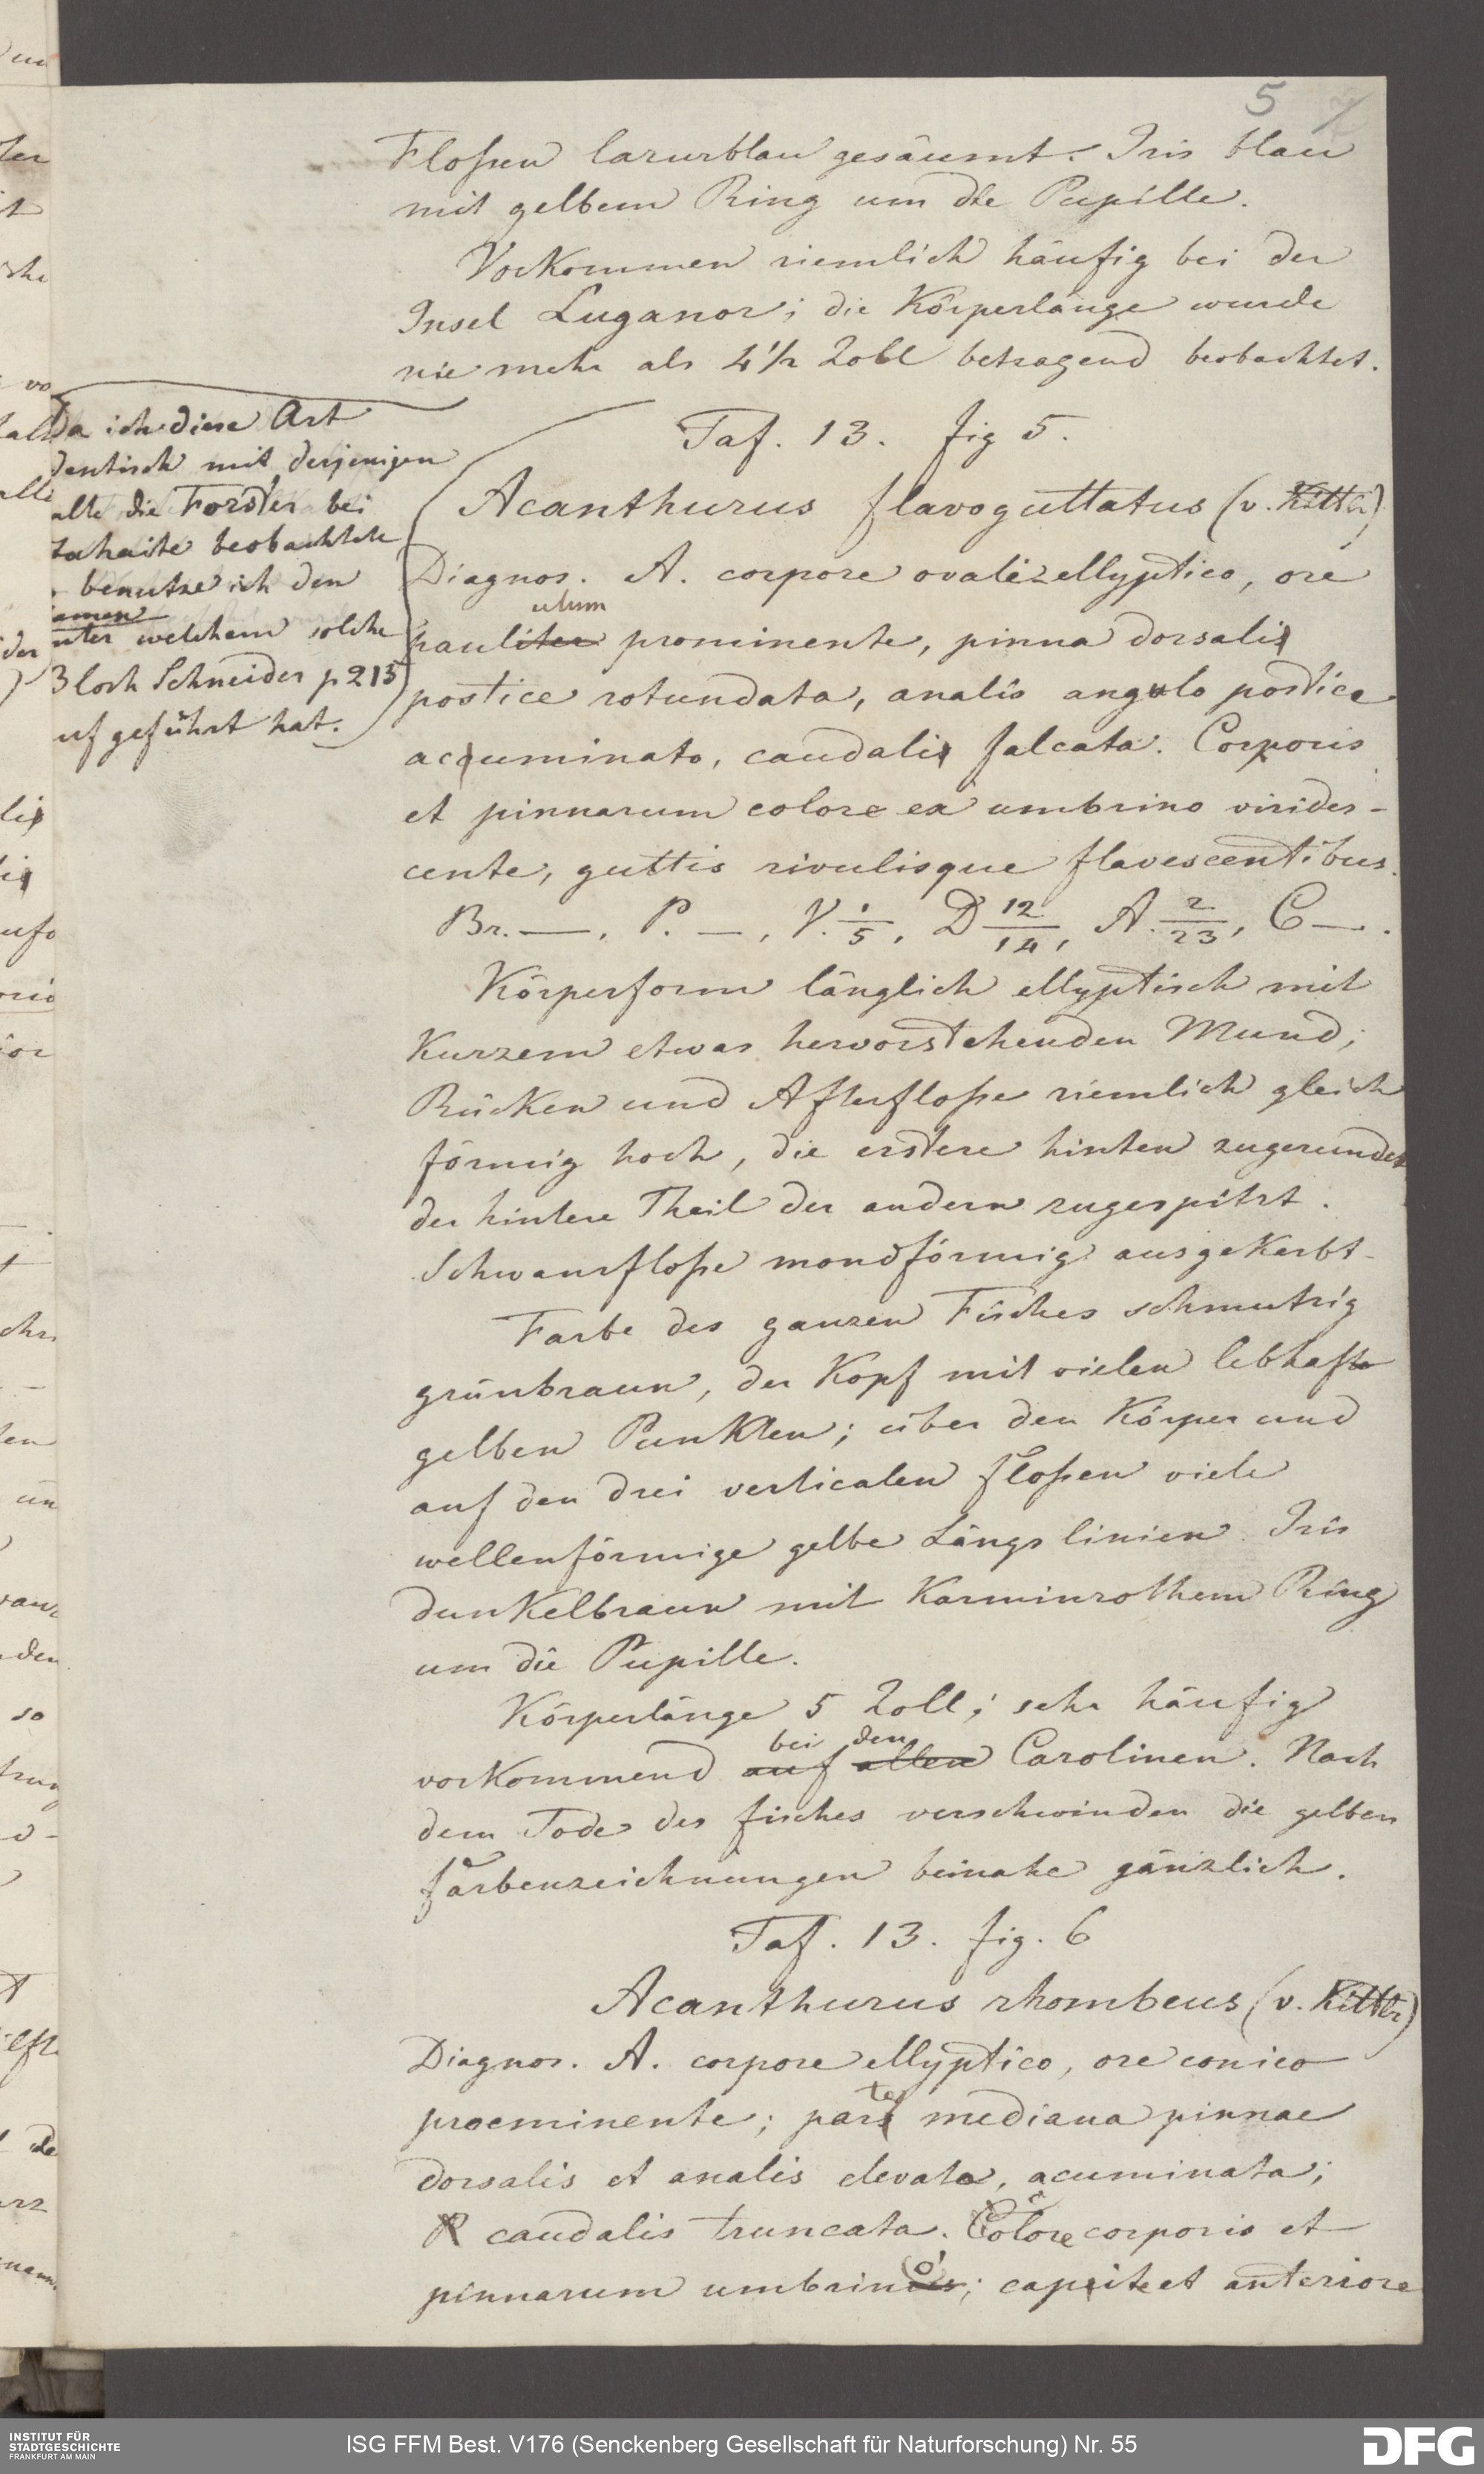 5
Floſsen lazurblau gesäumt. Iris blau
mit gelbem Ring um die Pupille.
Vorkommen ziemlich häufig bei der
Insel Luganor; die Körperlänge wurde
nie mehr als 4 1/2 Zoll betragend beobachtet.
Taf. 13. fig 5.
Acanthurus flavoguttatus (v. Kittlz)
Diagnos. A. corpore ovali-ellyptico, ore
ulum
pauliter prominente, pinna dorsali
postice rotundata, analis angulo postice
acuminato, caudali falcata. Corporis
et pinnarum colore ex umbrino virides-
cente, guttis rivulisque flavescentibus.
Br. —, P. —, V. 1/5, D 12/14, A. 2/23, C —.
Körperform länglich ellyptisch mit
kurzem etwas hervorstehenden Mund;
Rücken und Afterfloſse ziemlich gleich
förmig hoch, die erstere hinten zugerundet
der hintere Theil der andern zugespitzt.
Schwanzfloſse mondförmig ausgekerbt.
Farbe des ganzen Fisches schmutzig
grünbraun, der Kopf mit vielen lebhaft
gelben Punkten; über den Körper und
auf den drei verticalen Floſsen viele
wellenförmige gelbe Längslinien. Iris
dunkelbraun mit Karminrothem Ring
um die Pupille.
Körperlänge 5 Zoll; sehr häufig
bei den
vorkommend auf allen Carolinen. Nach
dem Tode des fisches verschwinden die gelben
farbenzeichnungen beinahe gänzlich.
Taf. 13. fig. 6
Acanthurus rhombeus (v. Kittlz)
Diagnos. A. corpore ellyptico, ore conico
te
proeminente; pars mediana pinnae
dorsalis et analis elevata, acuminata;
caudalis truncata. Colore corporis et
o
pinnarum umbrinus; capite et anteriore
Da ich diese Art
dentisch mit derjenigen
alte die Forster bei
Otaheite beobachtete
benutze ich den
amen
unter welchem solche
Bloch Schneider p 215
uf geführt hat.
INSTITUT FÜR
STADTGESCHICHTE
FRANKFURT AM MAIN
ISG FFM Best. V176 (Senckenberg Gesellschaft für Naturforschung) Nr. 55
DFG